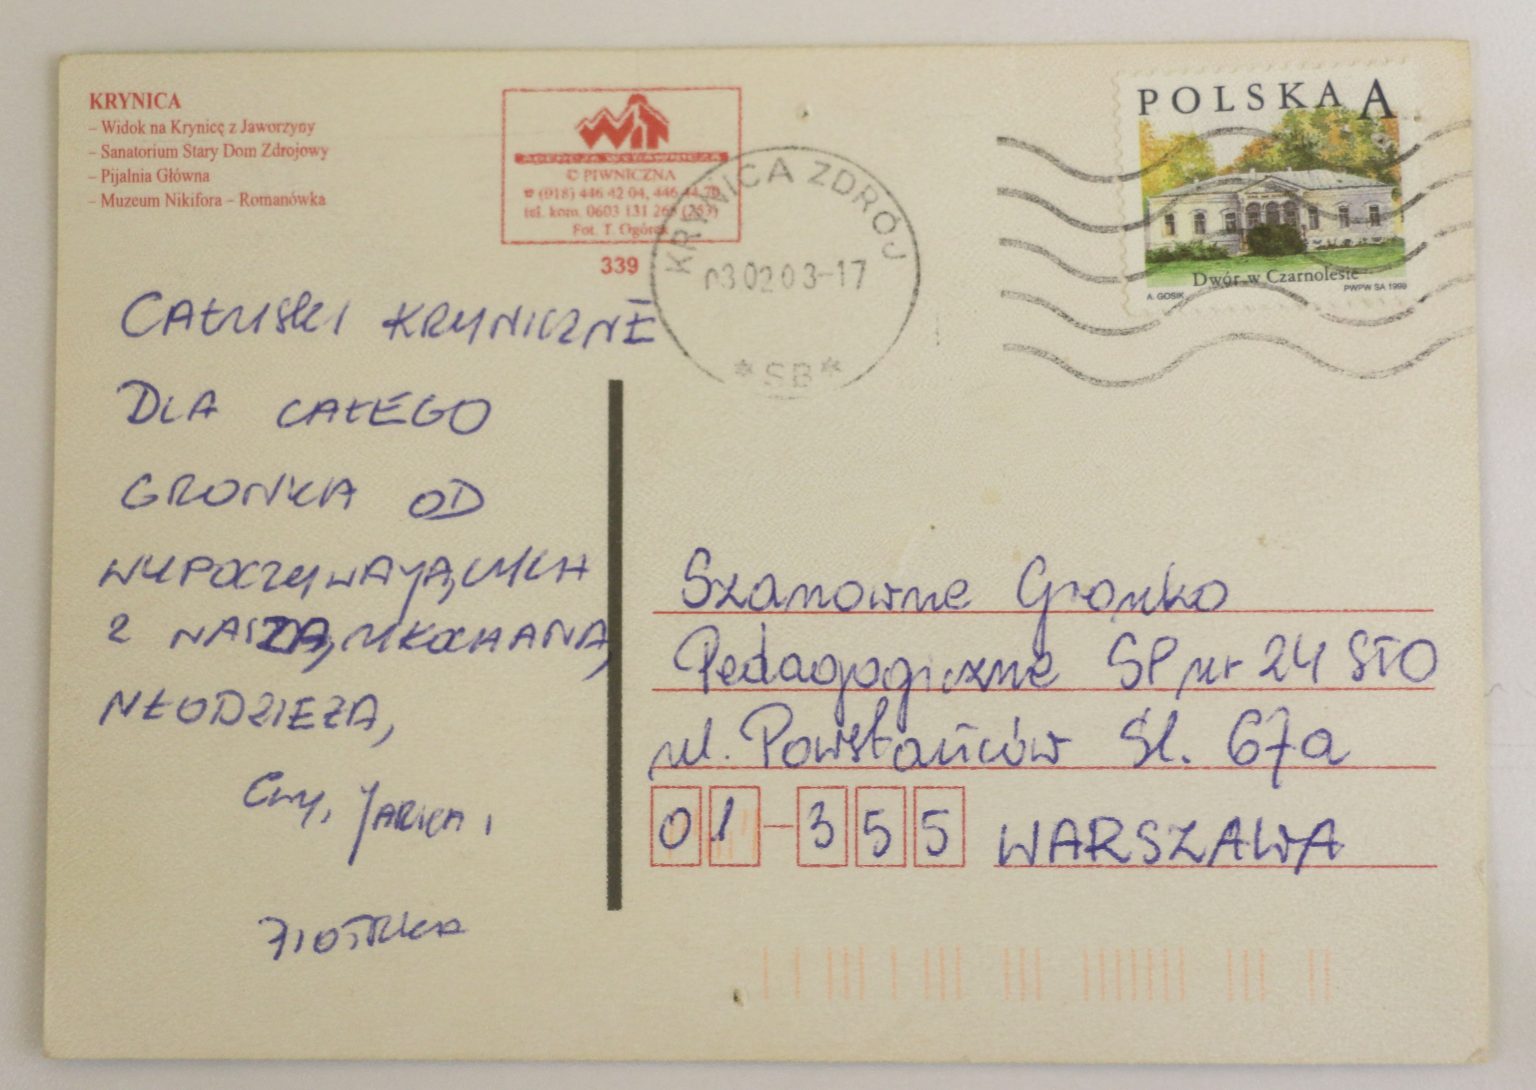 KRYNICA
– Widok na Krynicę z Jaworzyny
– Sanatorium Stary Dom Zdrojowy
– Pijalnia Główna
– Muzeum Nikifora – Romanówka
WIT
AGENCJA WYDAWNICZA
© PIWNICZNA
☎ (018) 446 42 04, 446 44 70
tel. kom. 0603 131 265 (253)
Fot. T. Ogórek
339
KRYNICA ZDRÓJ
030203-17
*SB*
POLSKA A
Dwór w Czarnolesie
A. GOSIK
PWPW SA 1998
CAŁUSKI KRYNICZNE
DLA CAŁEGO
GRONKA OD
WYPOCZYWAJĄCYCH
Z NASZĄ UKOCHANĄ
MŁODZIEŻĄ,
JARKA,
PIOTRKA
Szanowne Gronko
Pedagogiczne SP nr 24 STO
ul. Powstańców Śl. 67a
01-355 WARSZAWA